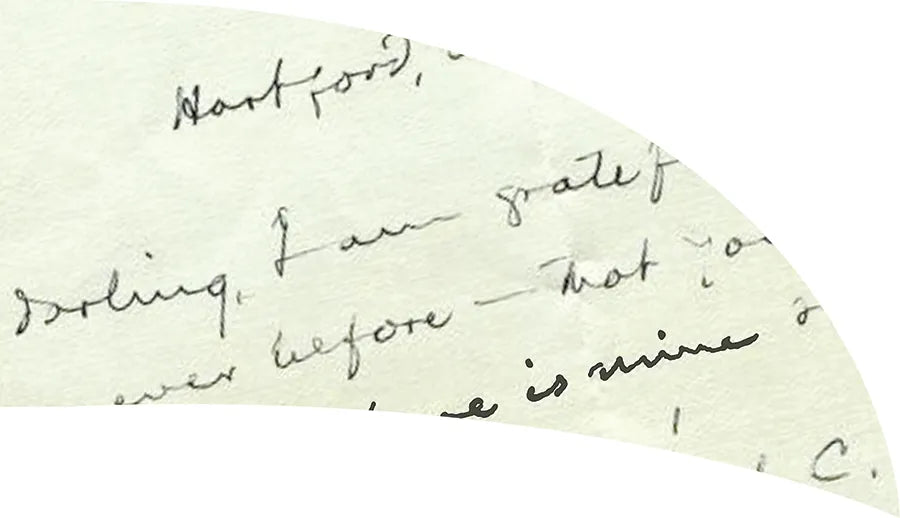 Hartford,
darling, I am gratef
ever before — that yo
is mine
C.